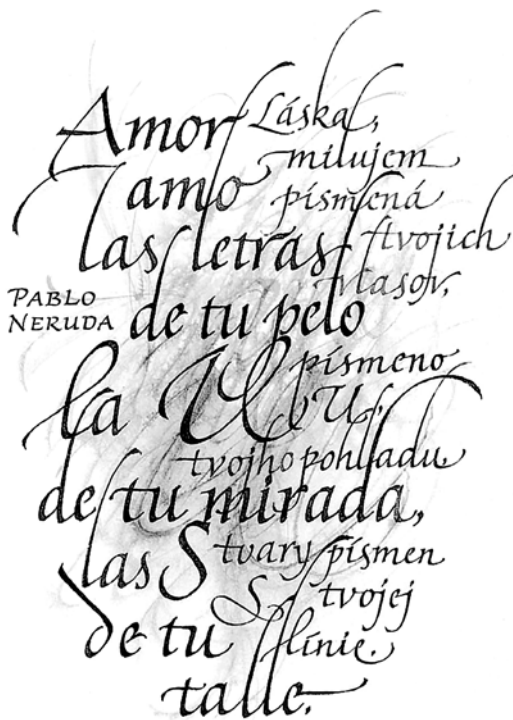 Amor
amo
las letras
de tu pelo
la U
de tu mirada,
las S
de tu
talle.
Láska,
milujem
písmená
tvojich
vlasov,
písmeno
U,
tvojho pohľadu
tvary písmen
S, tvojej
línie.
PABLO
NERUDA